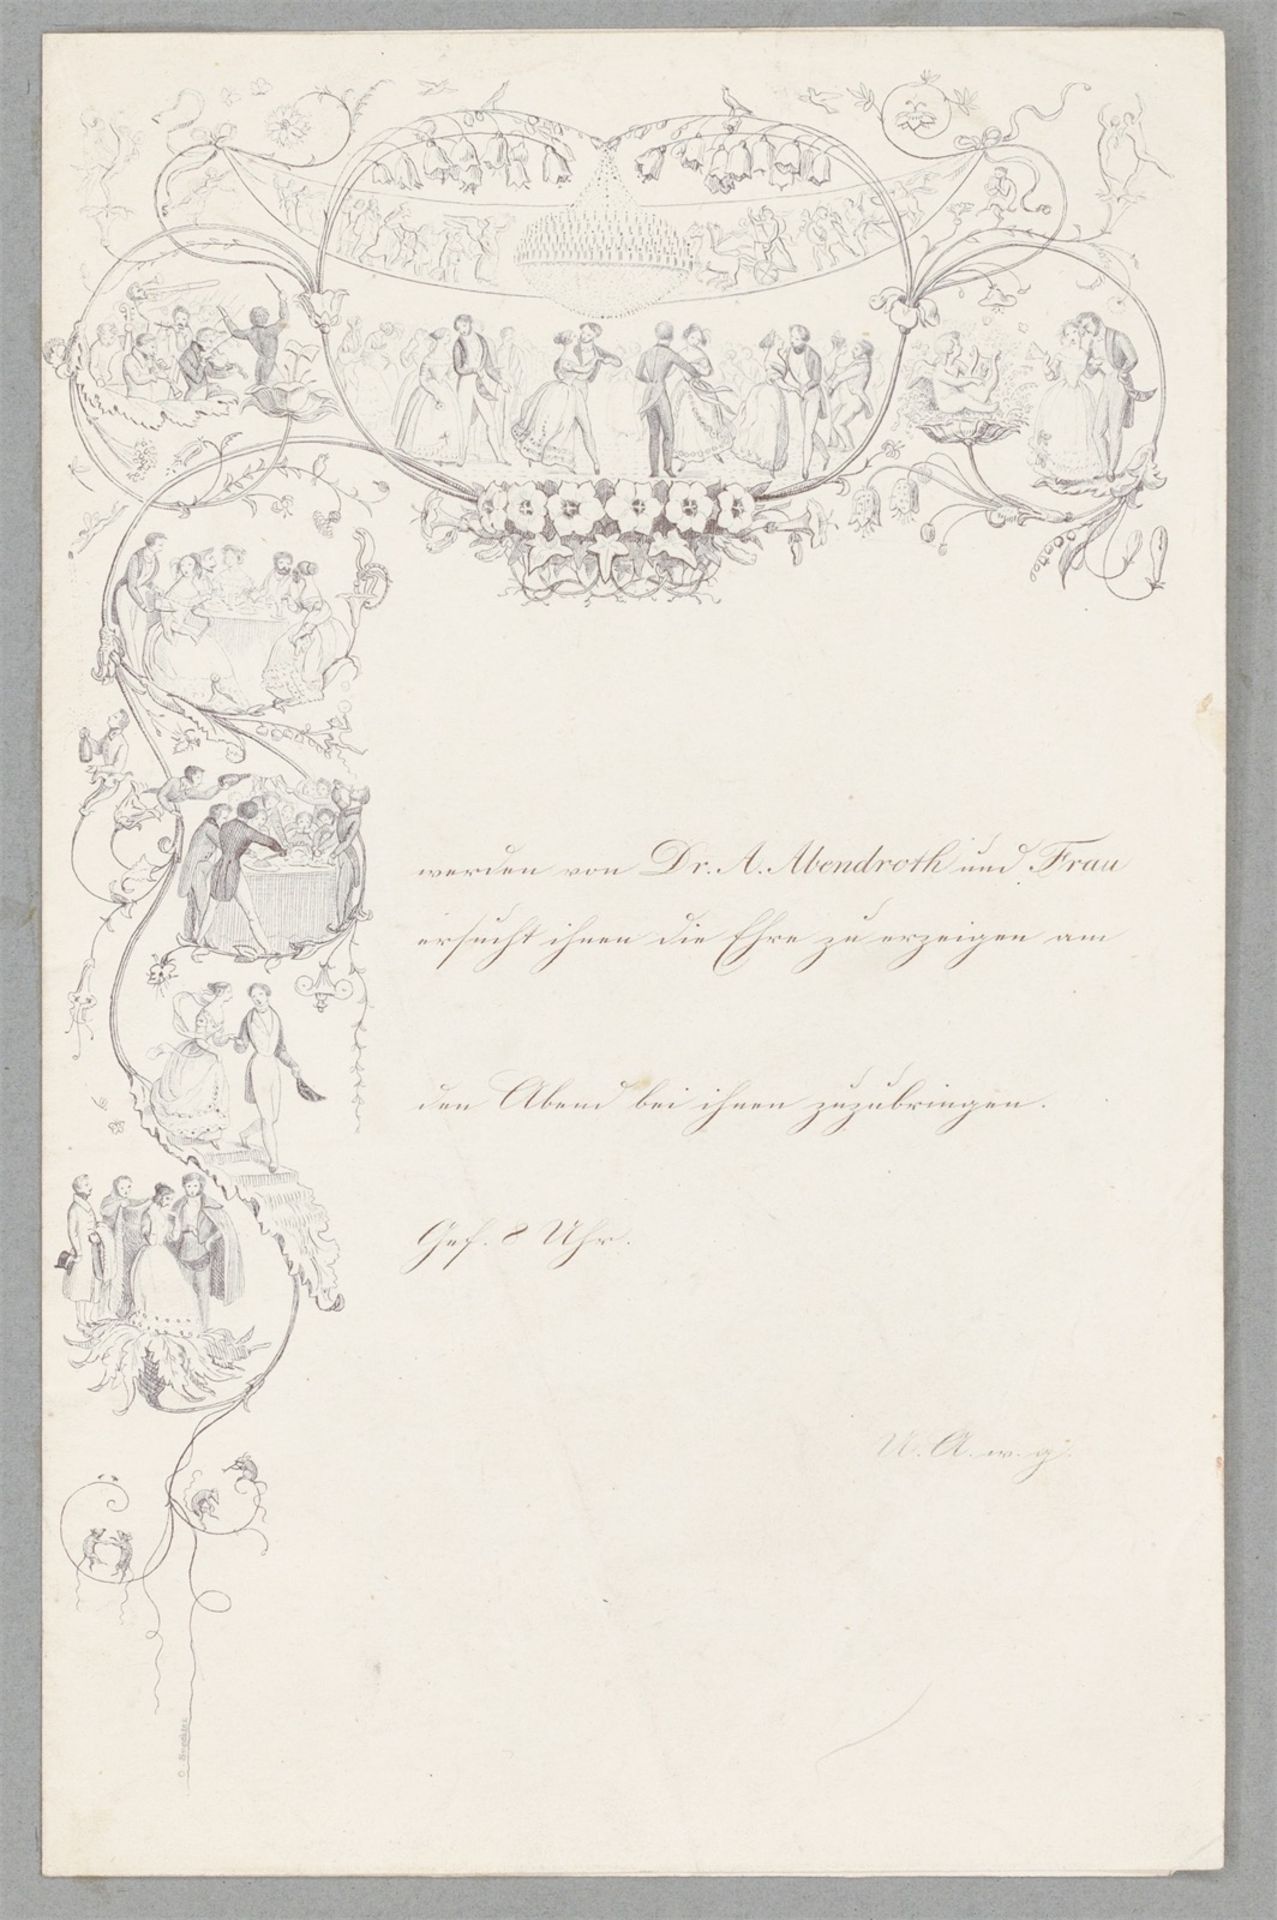 werden von Dr. A. Abendroth und Frau
ersucht ihnen die Ehre zu erzeigen am
den Abend bei ihnen zuzubringen.
Gef. 8 Uhr.
U. A. w. g.
O. Speckter